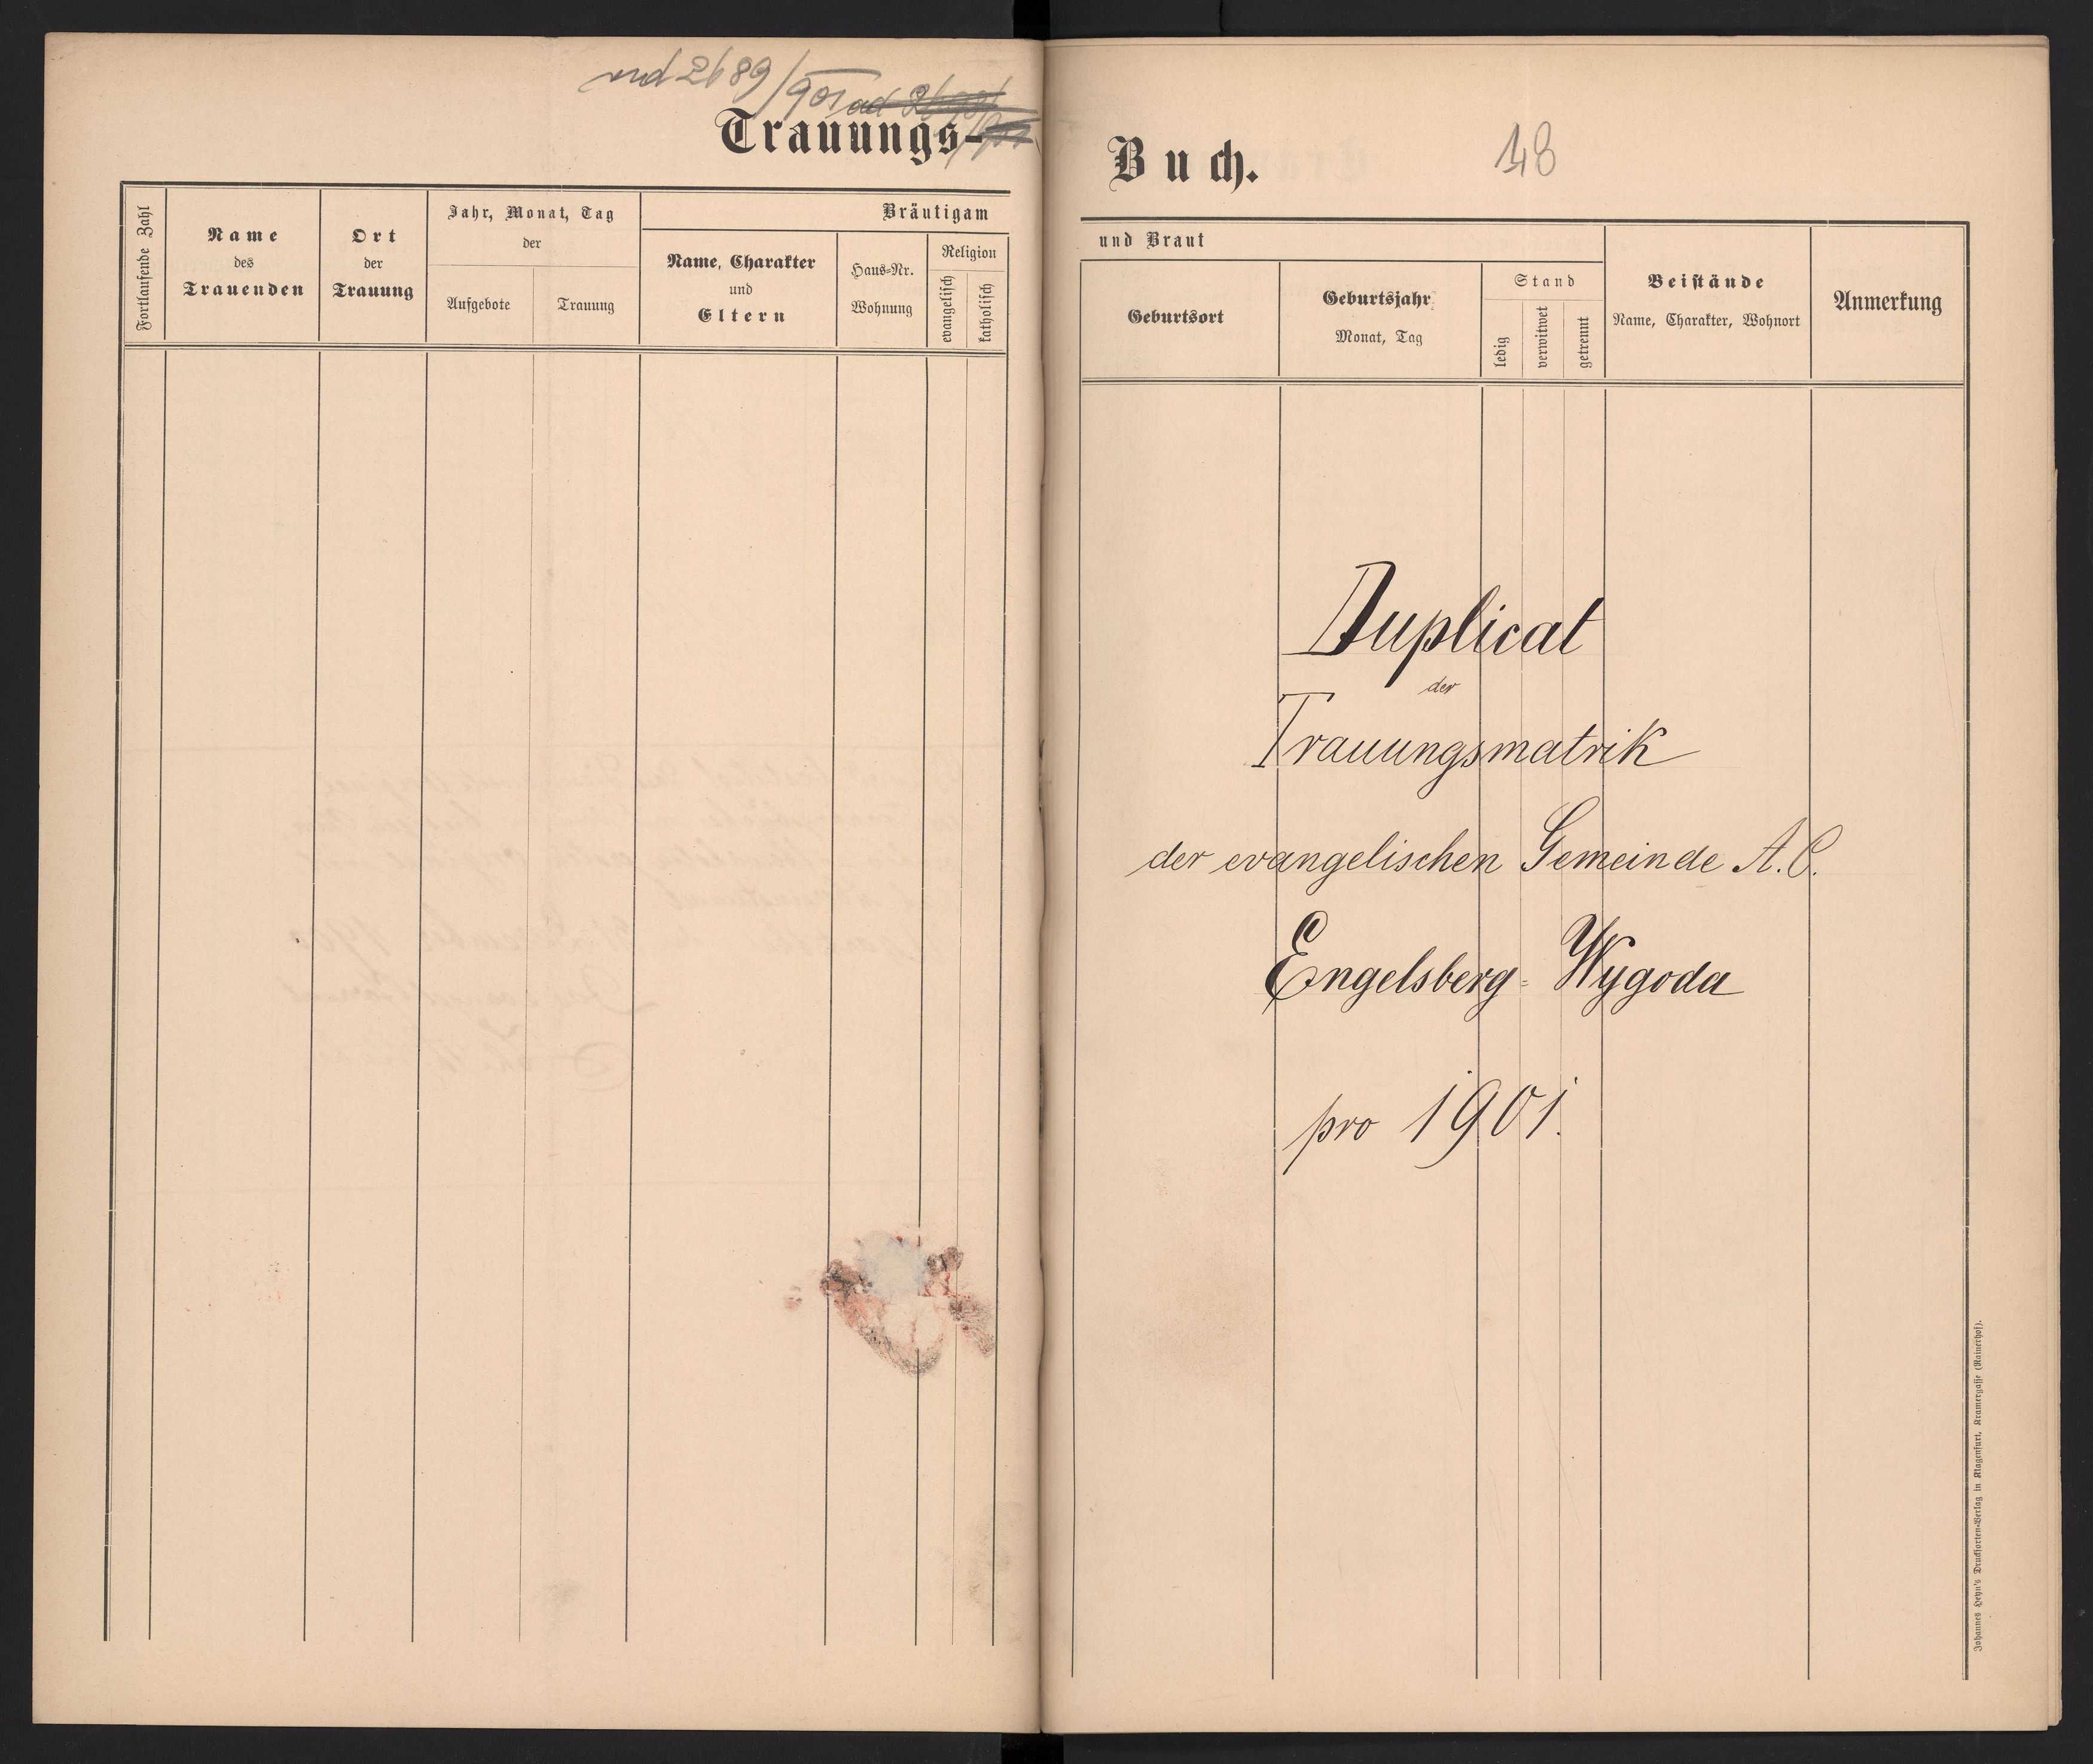 2689/901
Trauungs-
Fortlaufende Zahl
Name
des
Trauenden
Ort
der
Trauung
Jahr, Monat, Tag
der
Aufgebote
Trauung
Bräutigam
Name, Charakter
und
Eltern
Haus-Nr.
Wohnung
Religion
evangelisch
katholisch
Buch.
48
und Braut
Geburtsort
Geburtsjahr
Monat, Tag
Stand
ledig
verwitwet
getrennt
Beistände
Name, Charakter, Wohnort
Anmerkung
Duplicat
der
Trauungsmatrik
der evangelischen Gemeinde A. C.
Engelsberg-Wygoda
pro 1901.
Johannes Heyn's Drucksorten-Verlag in Klagenfurt, Kramergasse (Rainerhof).